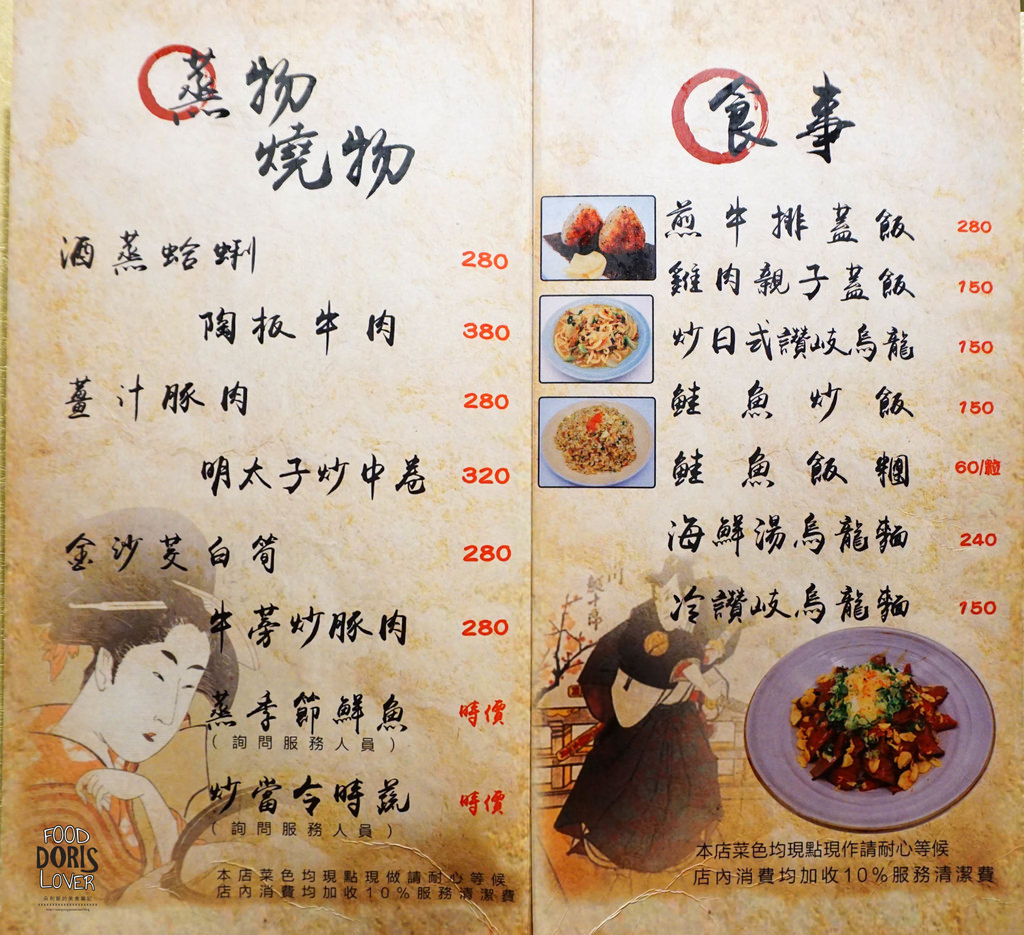 蒸物
燒物
酒蒸蛤蜊 280
陶板牛肉 380
薑汁豚肉 280
明太子炒中卷 320
金沙茭白筍 280
牛蒡炒豚肉 280
蒸季節鮮魚 時價
(詢問服務人員)
炒當令時蔬 時價
(詢問服務人員)
本店菜色均現點現做請耐心等候
店內消費均加收10%服務清潔費
FOOD
DORIS
LOVER
食事
煎牛排蓋飯 280
雞肉親子蓋飯 150
炒日式讚岐烏龍 150
鮭魚炒飯 150
鮭魚飯糰 60/粒
海鮮湯烏龍麵 240
冷讚岐烏龍麵 150
本店菜色均現點現作請耐心等候
店內消費均加收10%服務清潔費